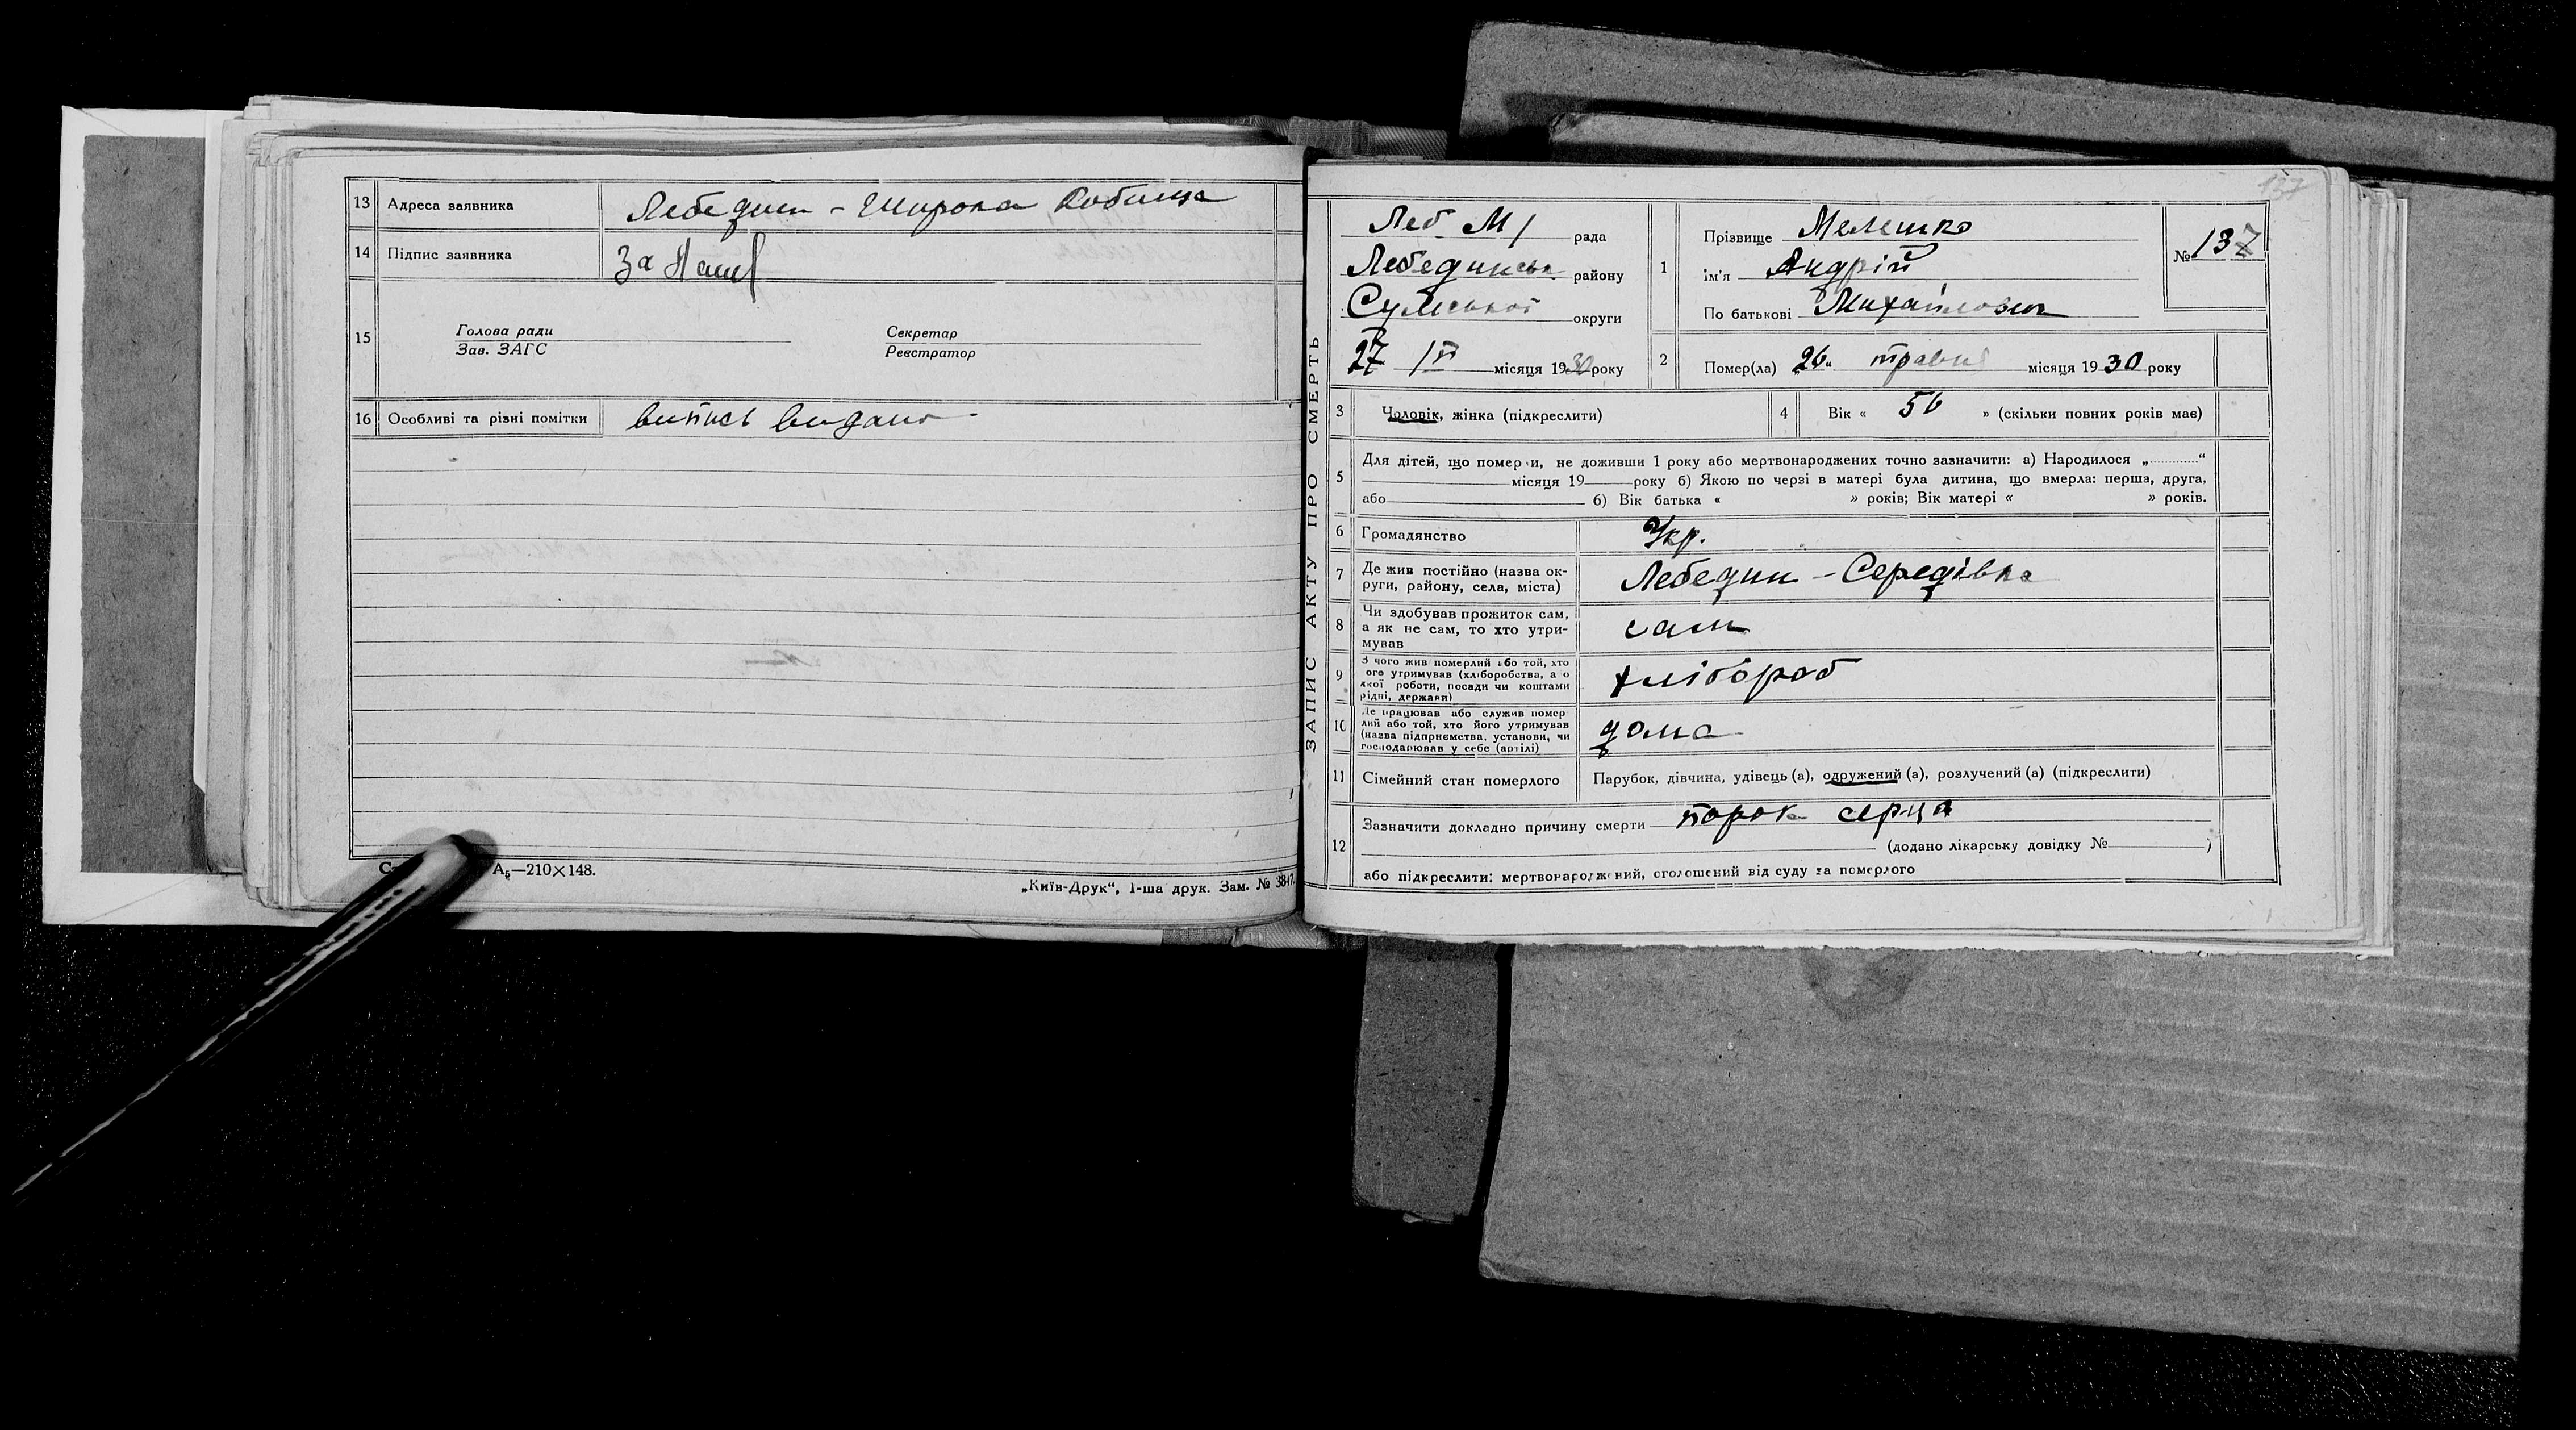 13 Адреса заявника Лебедин - Широка Кобища
14 Підпис заявника За
15 Голова ради Секретар
Зав. ЗАГС Реєстратор
16 Особливі та різні помітки випись видано
А₅—210×148.
„Київ-Друк“, 1-ша друк. Зам. № 3847.
ЗАПИС АКТУ ПРО СМЕРТЬ
137
Леб М/ рада
Лебединськ району
Сумської округи
27 місяця 1930 року
1 Прізвище Мелешко
ім'я Андрій
По батькові Михайлович
№ 137
2 Помер(ла) „26“ травня місяця 1930 року
3 Чоловік, жінка (підкреслити)
4 Вік « 56 » (скільки повних років має)
5 Для дітей, що померли, не доживши 1 року або мертвонароджених точно зазначити: а) Народилося „............“
місяця 19 року б) Якою по черзі в матері була дитина, що вмерла: перша, друга,
або б) Вік батька « » років; Вік матері « » років.
6 Громадянство Укр.
7 Де жив постійно (назва ок-
руги, району, села, міста) Лебедин - Середівка
8 Чи здобував прожиток сам,
а як не сам, то хто утри-
мував сам
9 З чого жив померлий або той, хто
ого утримував (хліборобства, а о
якої роботи, посади чи коштами
рідні, держави) хлібороб
10 Де працював або служив помер
лий або той, хто його утримував
(назва підприємства, установи, чи
господарював у себе (артілі) дома
11 Сімейний стан померлого Парубок, дівчина, удівець (а), одружений (а), розлучений (а) (підкреслити)
12 Зазначити докладно причину смерти порок серця
(додано лікарську довідку № )
або підкреслити: мертвонароджений, оголошений від суду за померлого